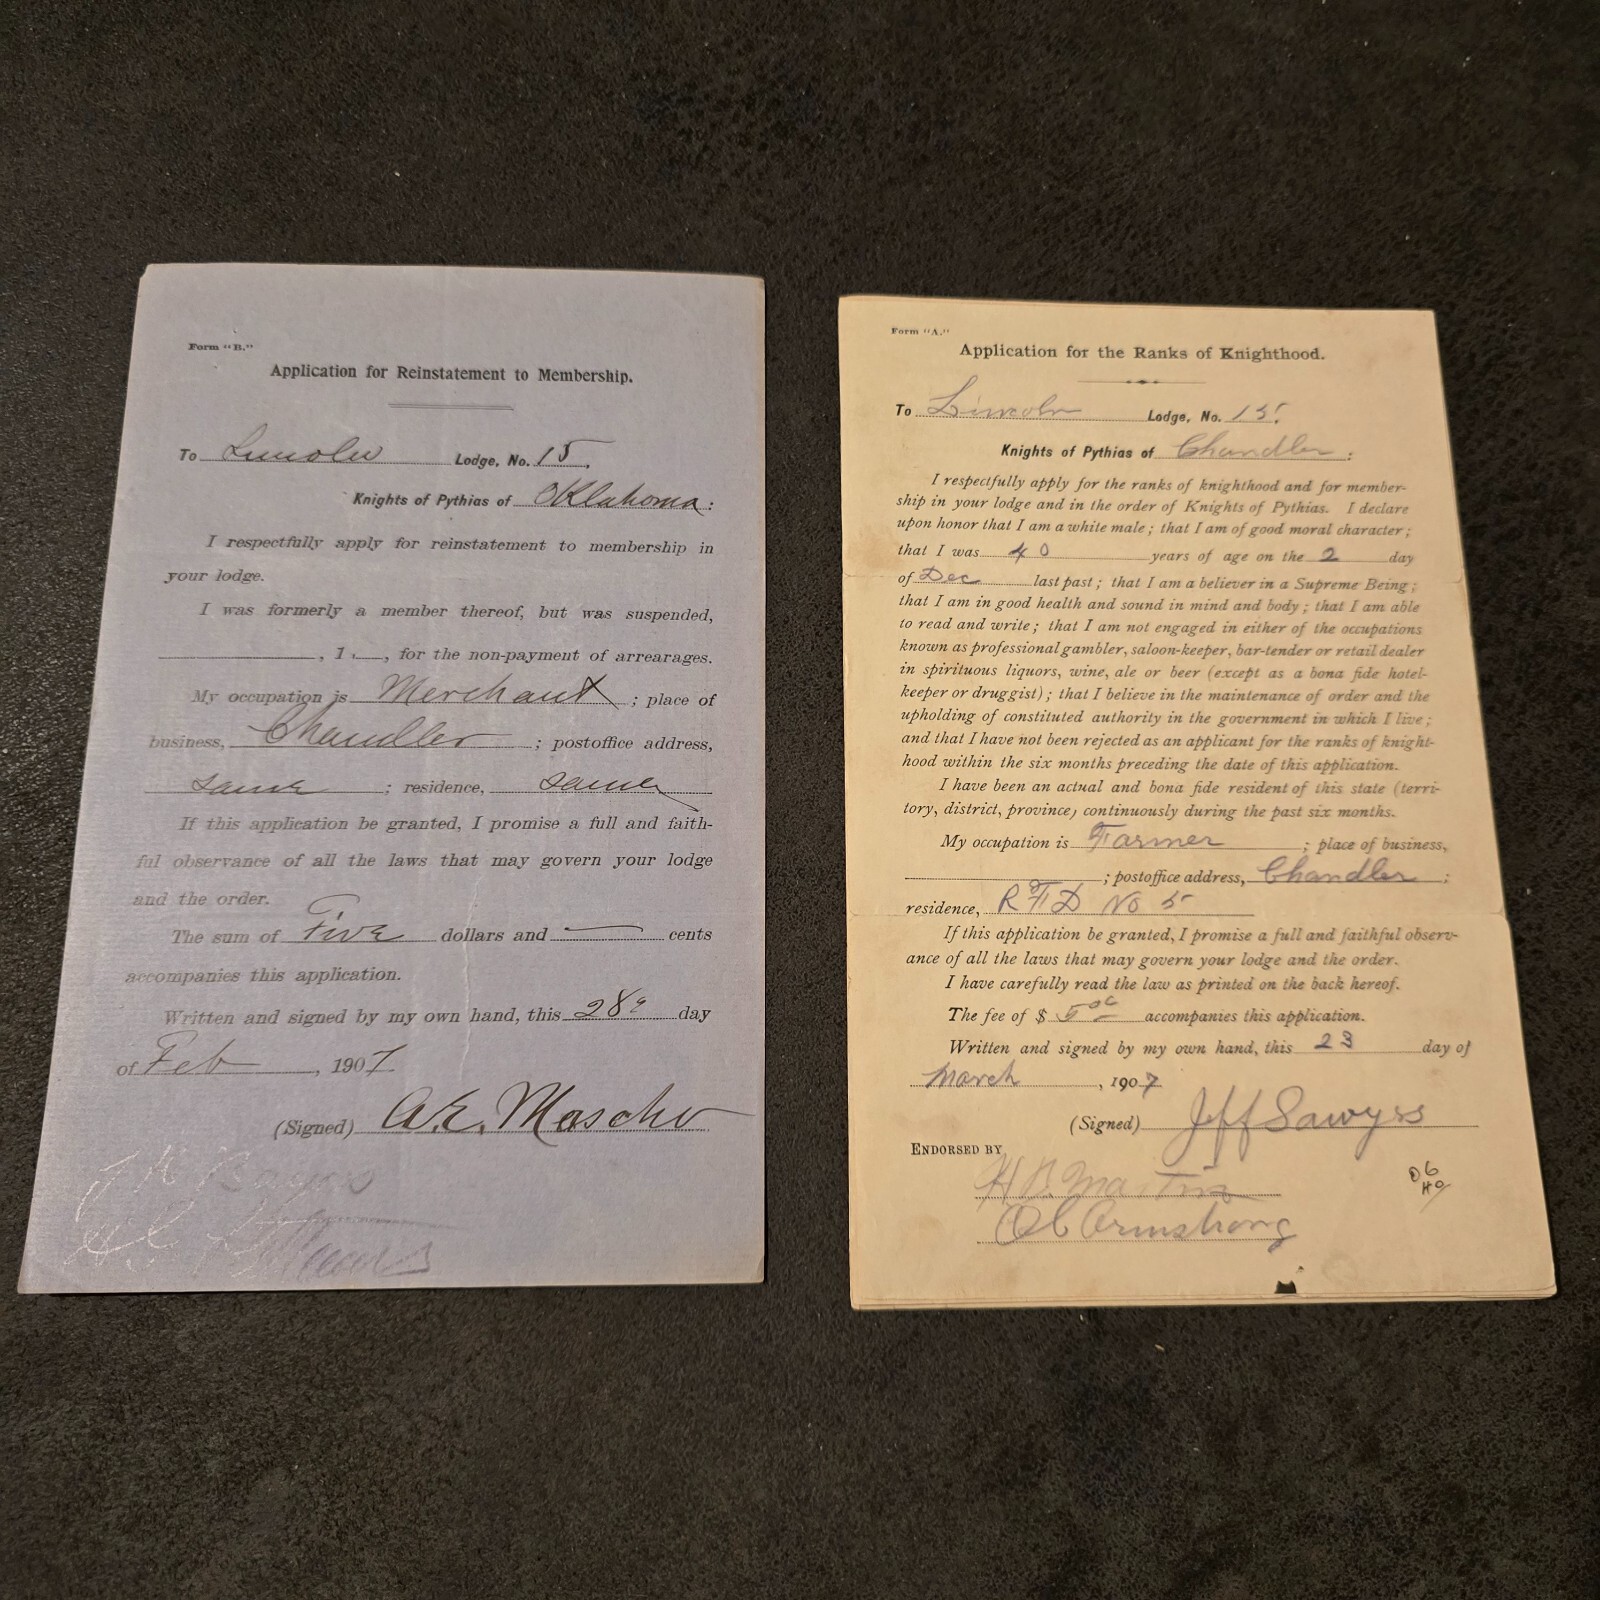 Form "B."
Application for Reinstatement to Membership.
To Lincoln Lodge, No. 15,
Knights of Pythias of Oklahoma:
I respectfully apply for reinstatement to membership in
your lodge.
I was formerly a member thereof, but was suspended,
, 1 , for the non-payment of arrearages.
My occupation is Merchant ; place of
business, Chandler ; postoffice address,
same ; residence, same
If this application be granted, I promise a full and faith-
ful observance of all the laws that may govern your lodge
and the order.
The sum of Five dollars and — cents
accompanies this application.
Written and signed by my own hand, this 28 day
of Feb , 1907
(Signed) A. E. Mascho
Form "A."
Application for the Ranks of Knighthood.
To Lincoln Lodge, No. 15,
Knights of Pythias of Chandler :
I respectfully apply for the ranks of knighthood and for member-
ship in your lodge and in the order of Knights of Pythias. I declare
upon honor that I am a white male; that I am of good moral character;
that I was 40 years of age on the 2 day
of Dec last past; that I am a believer in a Supreme Being;
that I am in good health and sound in mind and body; that I am able
to read and write; that I am not engaged in either of the occupations
known as professional gambler, saloon-keeper, bar-tender or retail dealer
in spirituous liquors, wine, ale or beer (except as a bona fide hotel-
keeper or druggist); that I believe in the maintenance of order and the
upholding of constituted authority in the government in which I live;
and that I have not been rejected as an applicant for the ranks of knight-
hood within the six months preceding the date of this application.
I have been an actual and bona fide resident of this state (terri-
tory, district, province) continuously during the past six months.
My occupation is Farmer ; place of business,
; postoffice address, Chandler ;
residence, RFD No 5
If this application be granted, I promise a full and faithful observ-
ance of all the laws that may govern your lodge and the order.
I have carefully read the law as printed on the back hereof.
The fee of $ 5 00 accompanies this application.
Written and signed by my own hand, this 23 day of
March , 1907
(Signed) Jeff Sawyer
ENDORSED BY
H B Martin
O C Armstrong